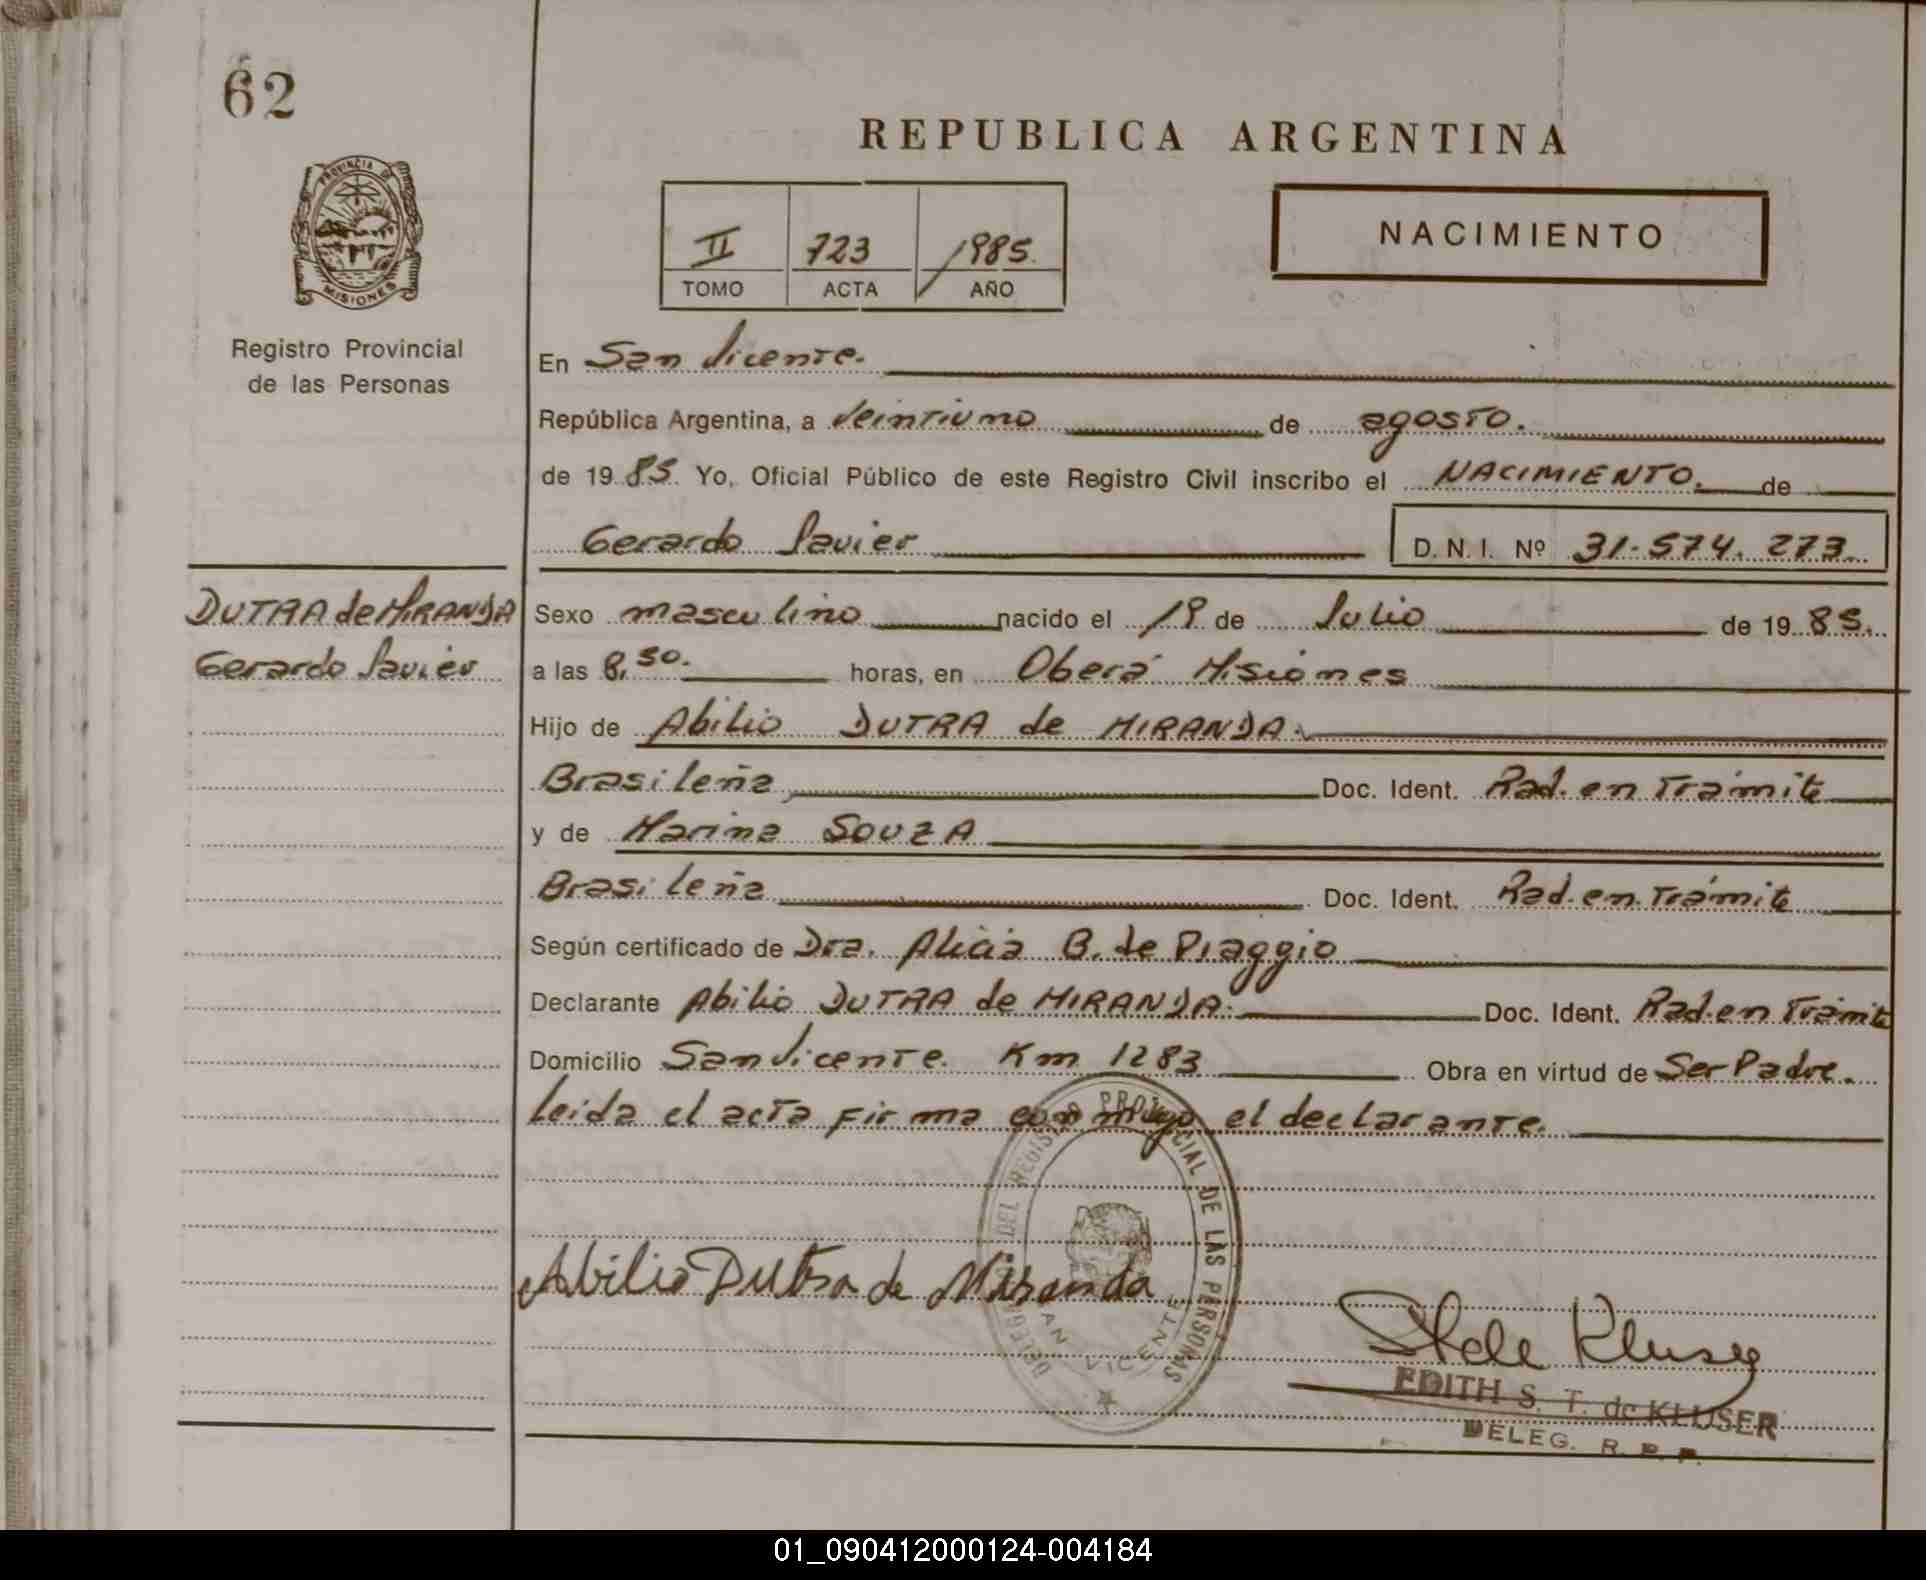 62
REPUBLICA ARGENTINA
PROVINCIA DE
MISIONES
Registro Provincial
de las Personas
II 723 1985
TOMO ACTA AÑO
NACIMIENTO
En San Vicente.
República Argentina, a Veintiuno de agosto.
de 19 85. Yo, Oficial Público de este Registro Civil inscribo el NACIMIENTO. de
Gerardo Javier D. N. I. Nº 31.574.273.
DUTRA de MIRANDA
Gerardo Javier
Sexo masculino nacido el 19 de Julio de 19 85.
a las 8,30. horas, en Oberá Misiones
Hijo de Abilio DUTRA de MIRANDA.
Brasileña Doc. Ident. Rad. en Trámite
y de Marina SOUZA
Brasileña Doc. Ident. Rad. en Trámite
Según certificado de Dra. Alicia B. de Piaggio
Declarante Abilio DUTRA de MIRANDA. Doc. Ident. Rad. en Trámite
Domicilio San Vicente. Km 1283 Obra en virtud de Ser Padre.
Leida el acta firma conmigo el declarante.
DEL REGISTRO PROVINCIAL DE LAS PERSONAS
SAN VICENTE
Abilio Dutra de Miranda
EDITH S. T. de KLUSER
DELEG. R. P. P.
01_090412000124-004184